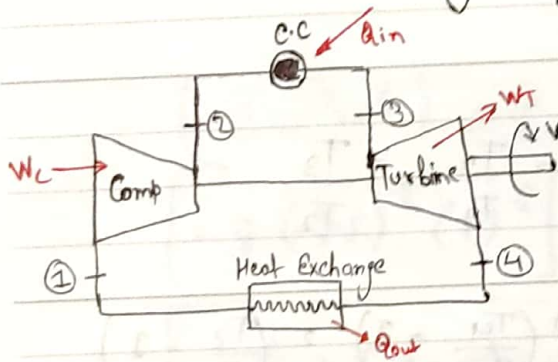 C.C
Qin
②
③
WT
Wc
Comp
Turbine
①
Heat Exchange
④
Qout